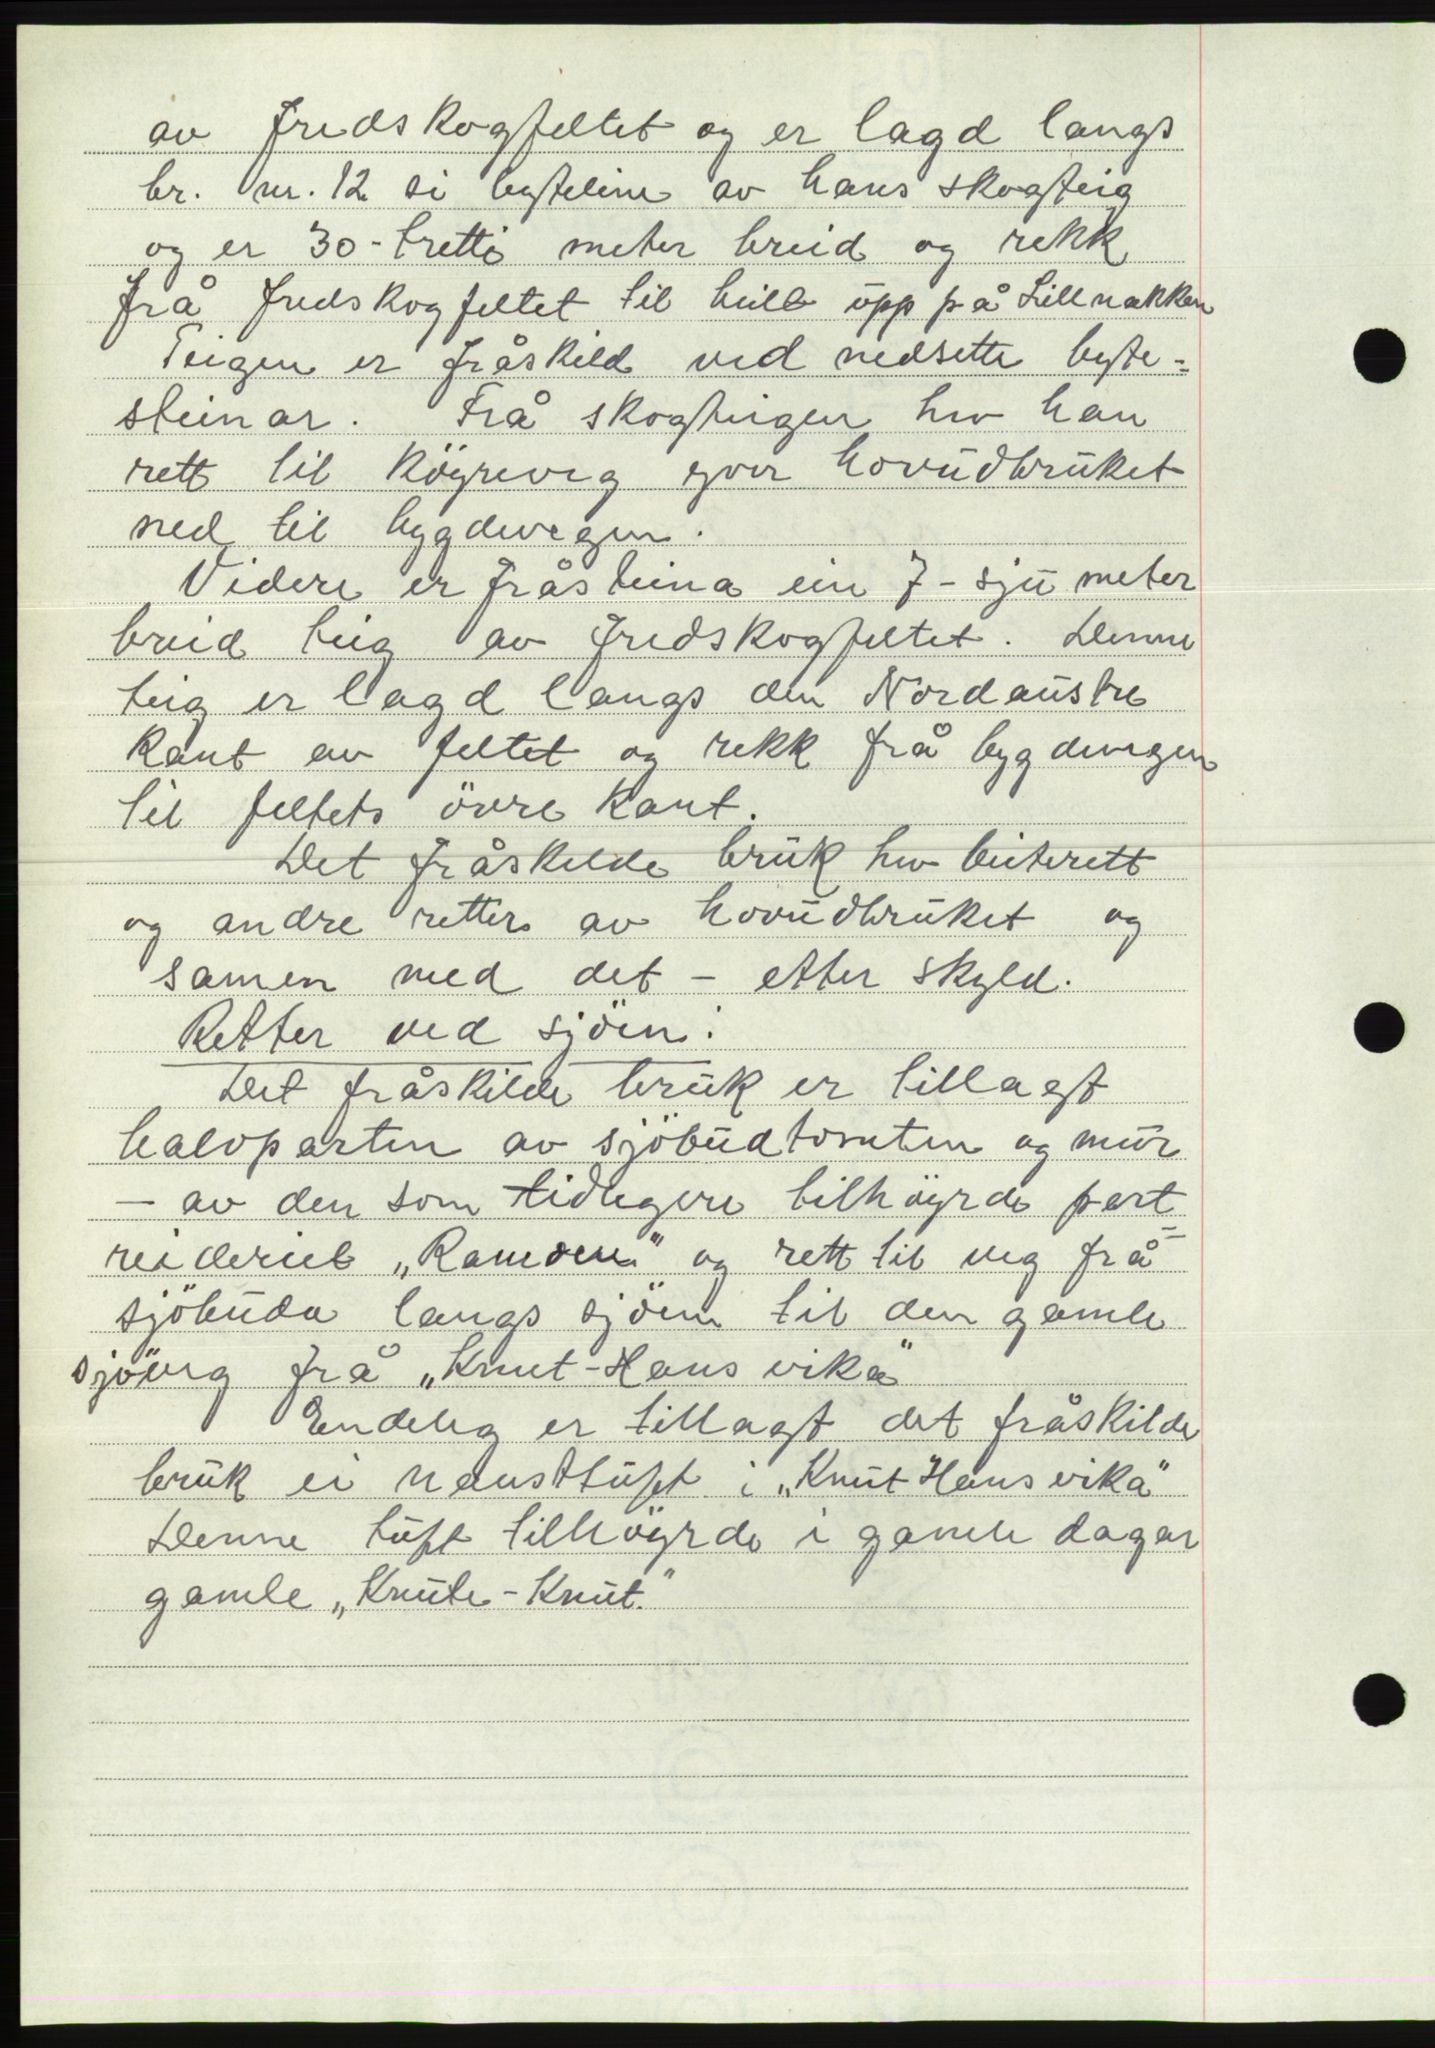 av fredskogfeltet og er lagd langs
br. nr. 12 si byteline av hans skogteig
og er 30-tretti meter breid og rekk
frå fredskogfeltet til heilt upp på Lillnakken
Teigen er fråskild ved nedsette byte-
steinar. Frå skogteigen hev han
rett til köyreveg yver hovudbruket
ned til bygdevegen.
Videre er fråsteina ein 7-sju meter
breid teig av fredskogfeltet. Denne
teig er lagd langs den Nordaustre
kant av feltet og rekk frå bygdevegen
til feltets övre kant.
Det fråskilde bruk hev beiterett
og andre retter av hovudbruket og
samen med det - etter skyld.
Retter ved sjöen:
Det fråskilde bruk er tillagt
halvparten av sjöbudtomten og mur
- av den som tidlegere tilhöyrde part
reideriet „Ramoen" og rett til veg frå
sjöbuda langs sjöen til den gamle
sjöveg frå „Knut-Hans vika"
Endeleg er tillagt det fråskilde
bruk ei nausttuft i „Knut Hans vika"
Denne tuft tilhöyrde i gamle dagar
gamle „Knute-Knut."